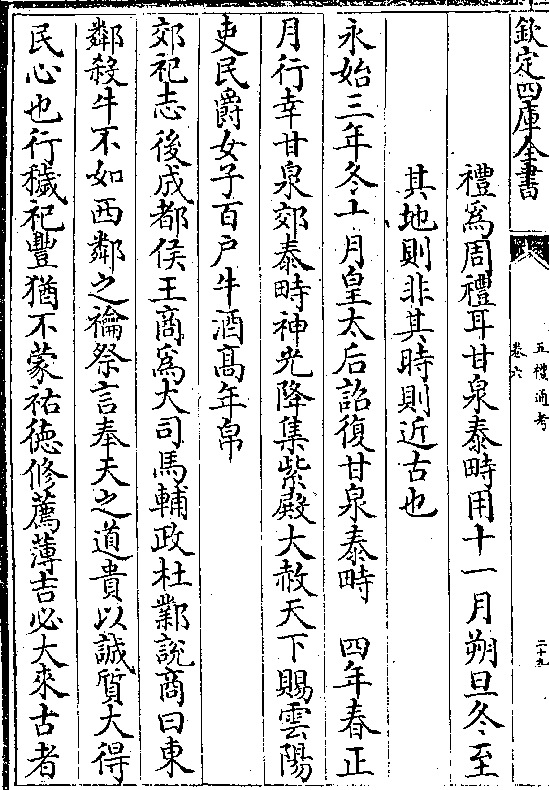 欽定四庫全書
五禮通考
卷六
二十九
禮為周禮耳甘泉泰畤用十一月朔旦冬至
其地則非其時則近古也
永始三年冬十月皇太后詔復甘泉泰畤　四年春正
月行幸甘泉郊泰畤神光降集紫殿大赦天下賜雲陽
吏民爵女子百户牛酒高年帛
郊祀志後成都侯王商為大司馬輔政杜鄴說商曰東
鄰殺牛不如西鄰之禴祭言奉天之道貴以誠質大得
民心也行穢祀豐猶不蒙祐德修薦薄吉必大來古者